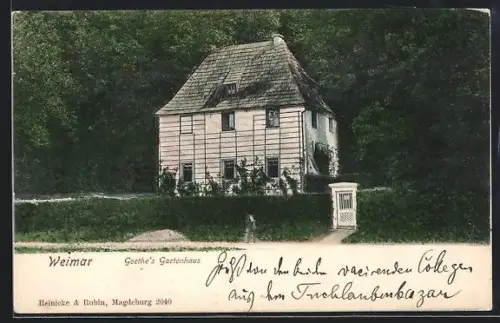 Weimar
Goethe's Gartenhaus
Gruß von den beiden vacirenden Collegen
aus dem Tuchlaubenbazar
Reinicke & Rubin, Magdeburg 2040